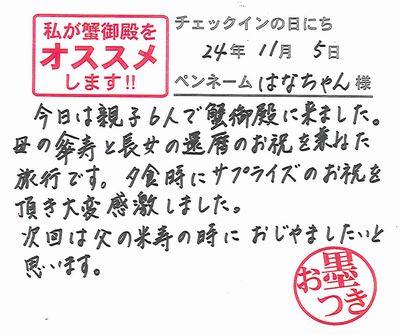 私が蟹御殿を
オススメ
します!!
チェックインの日にち
24年 11月 5日
ペンネーム はなちゃん 様
今日は親子6人で蟹御殿に来ました。
母の傘寿と長女の還暦のお祝を兼ねた
旅行です。夕食時にサプライズのお祝を
頂き大変感激しました。
次回は父の米寿の時に おじゃましたいと
思います。
お墨つき